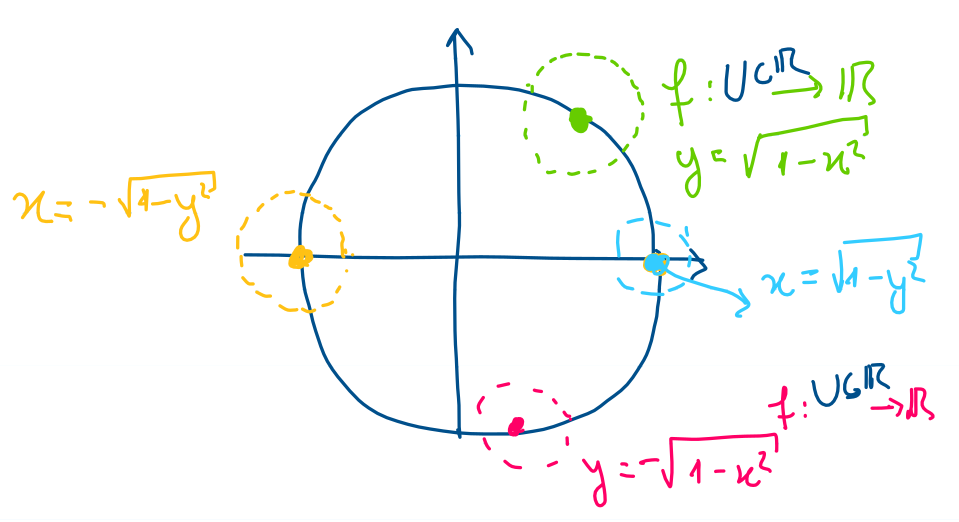 f : U ⊂ ℝ → ℝ
y = √(1-x²)
x = -√(1-y²)
x = √(1-y²)
f : U ⊂ ℝ → ℝ
y = -√(1-x²)